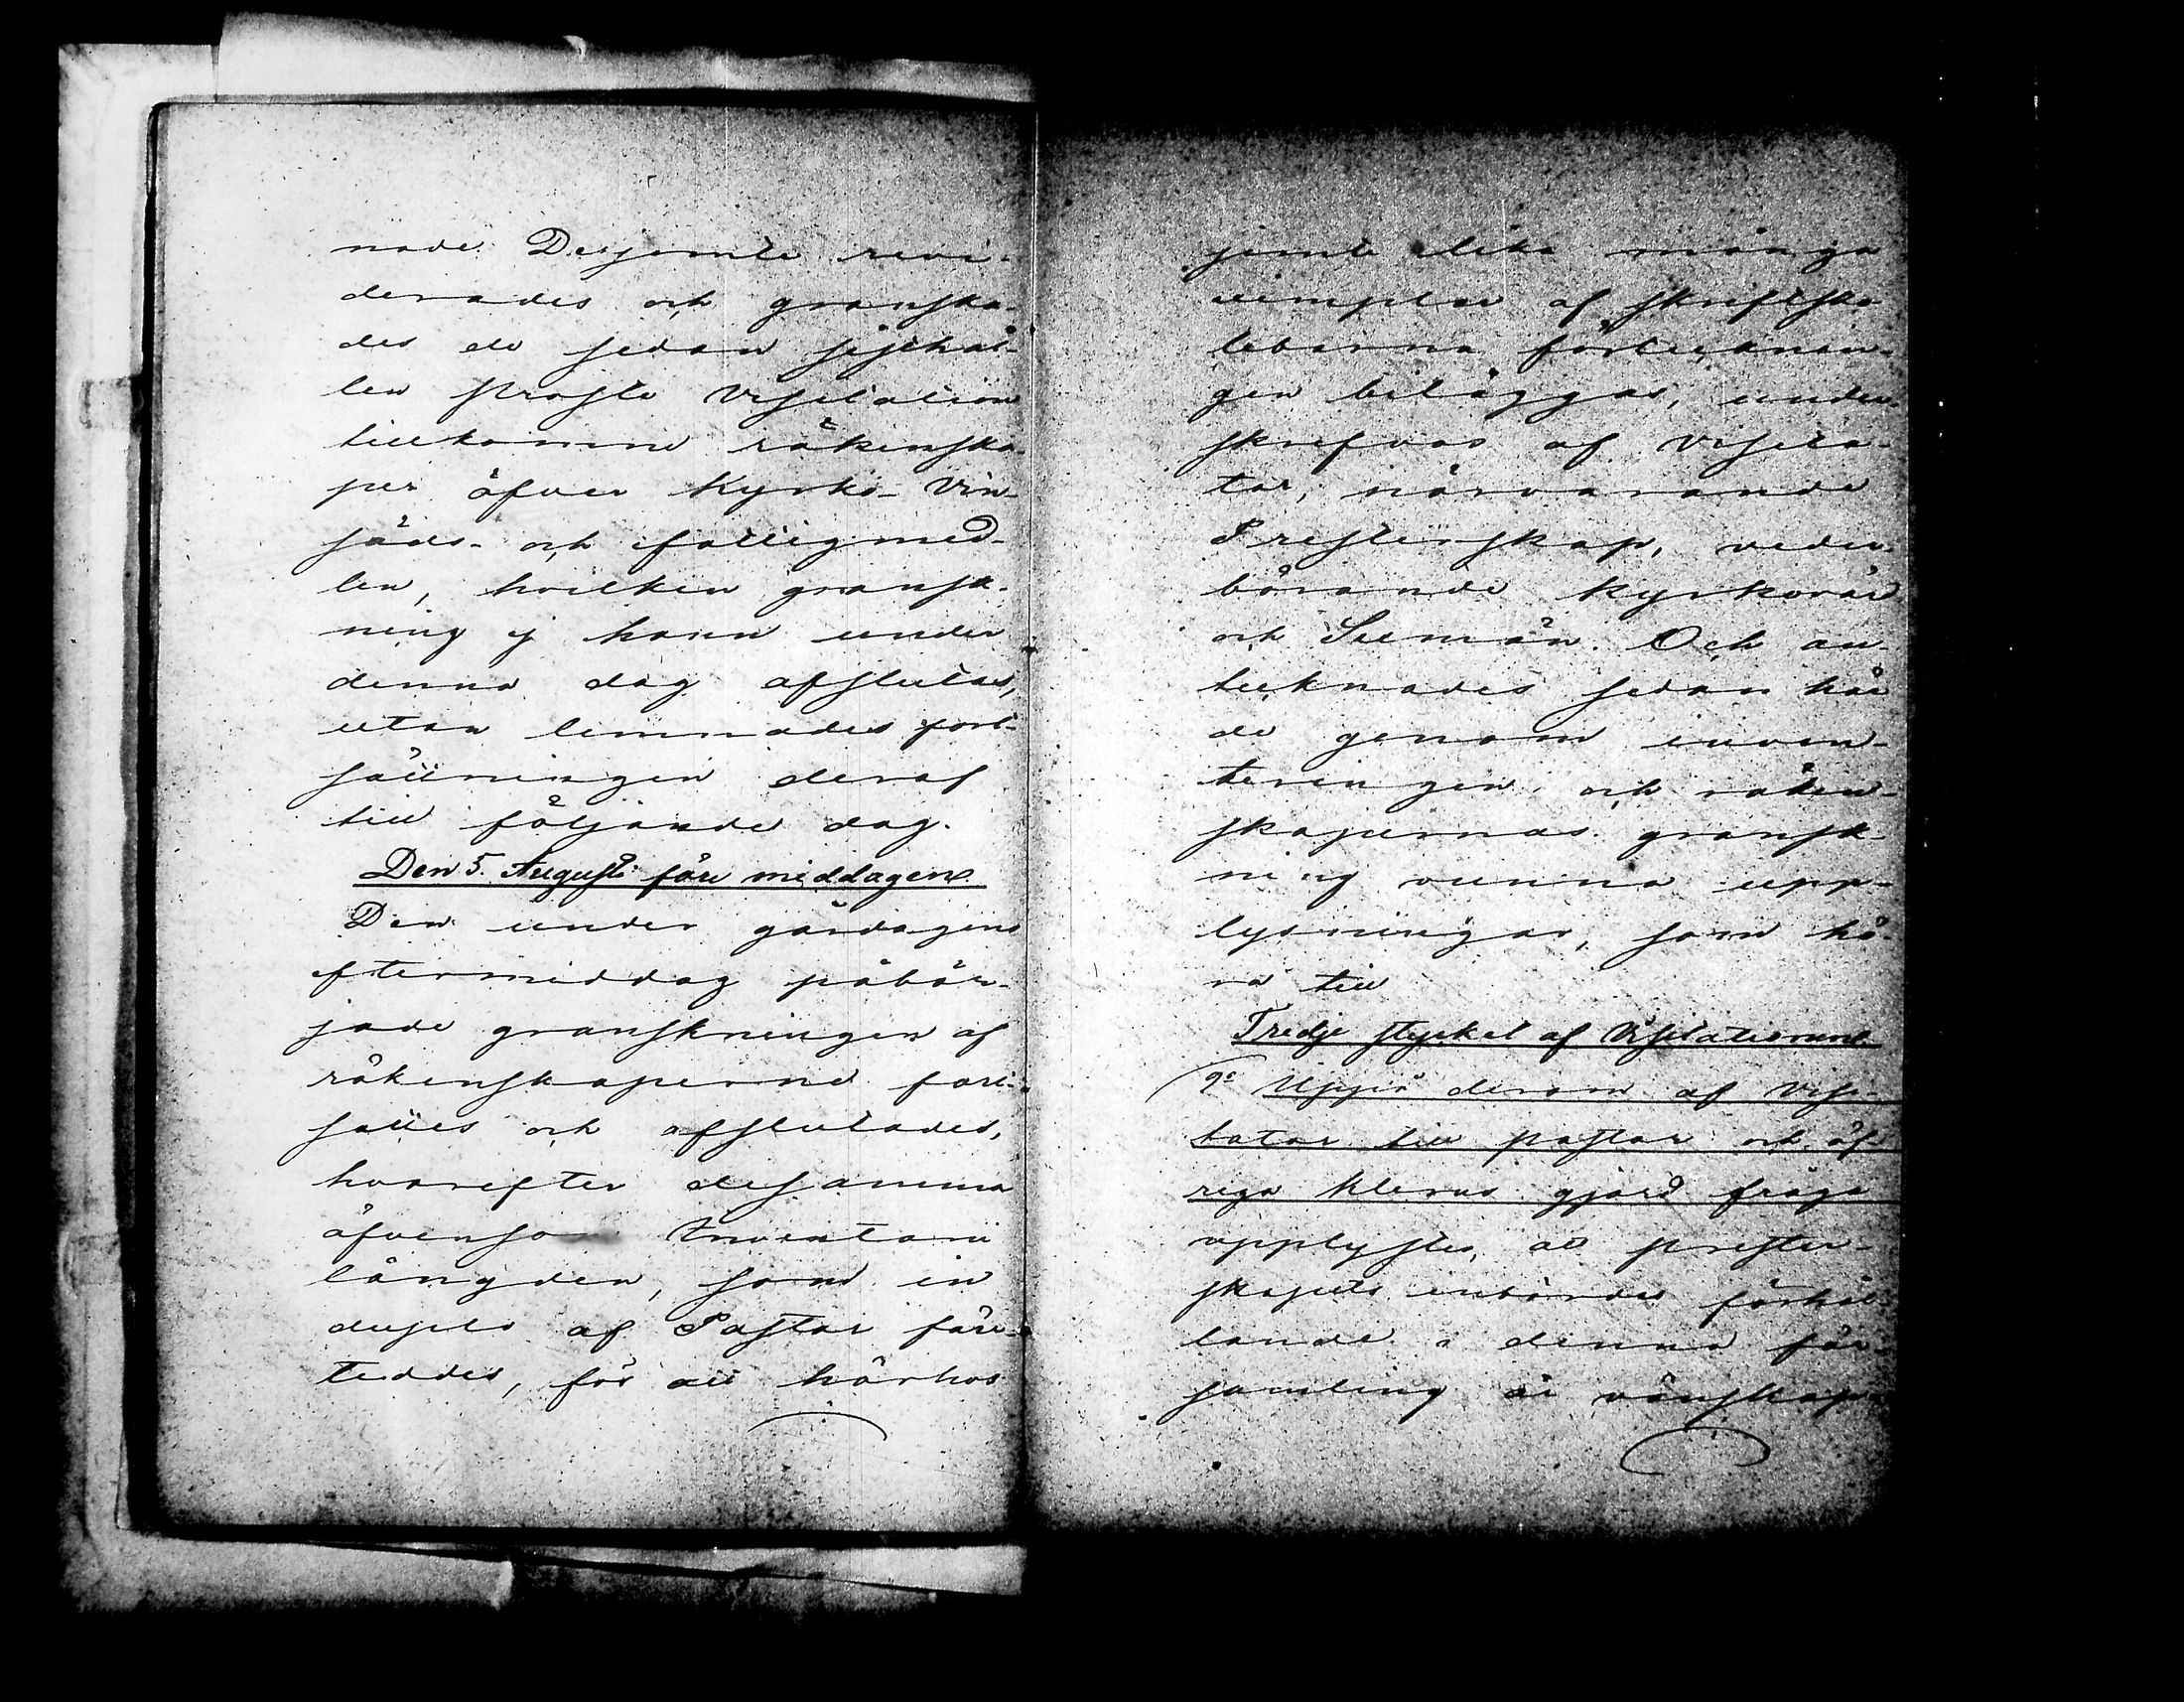 nade. Desjemte revi-
derades och granska-
des de sedan sisthål-
len Proste Visitation
tillkomne räkenska-
per öfver Kyrko- Vin-
säds- och fattigmed-
len, hvilken gransk-
ning ej hann under
denna dag afslutas,
utan lemnades fort-
sättningen deraf
till följande dag.
Den 5. Augusti före middagen.
Den under gårdagens
eftermiddag påbör-
jade granskningen af
räkenskaperne fort-
sattes och afslutades,
hvarefter desamma
äfvensom Inventarii
längden, som in
duplo af Pastor före-
teddes, för att härhos
jemte lika många
exemplar af skriftsko-
lebarna förteckning-
gen biläggas, under-
skrefvos af Visita-
tor, närvarande
Presterskap, veder-
börande Kyrkovärd
och Sexmän. Och an-
tecknades sedan här
de genom inven-
teringen och räken-
skapernas gransk-
ning vunna upp-
lysningar, som hö-
ra till
Tredje stycket af Visitationen.
9o Uppå derom af Visi-
tator till pastor och öf-
riga klerus gjord fråga
upplystes, att prester-
skapets inbördes förhål-
lande i denna för-
samling är vänskap-